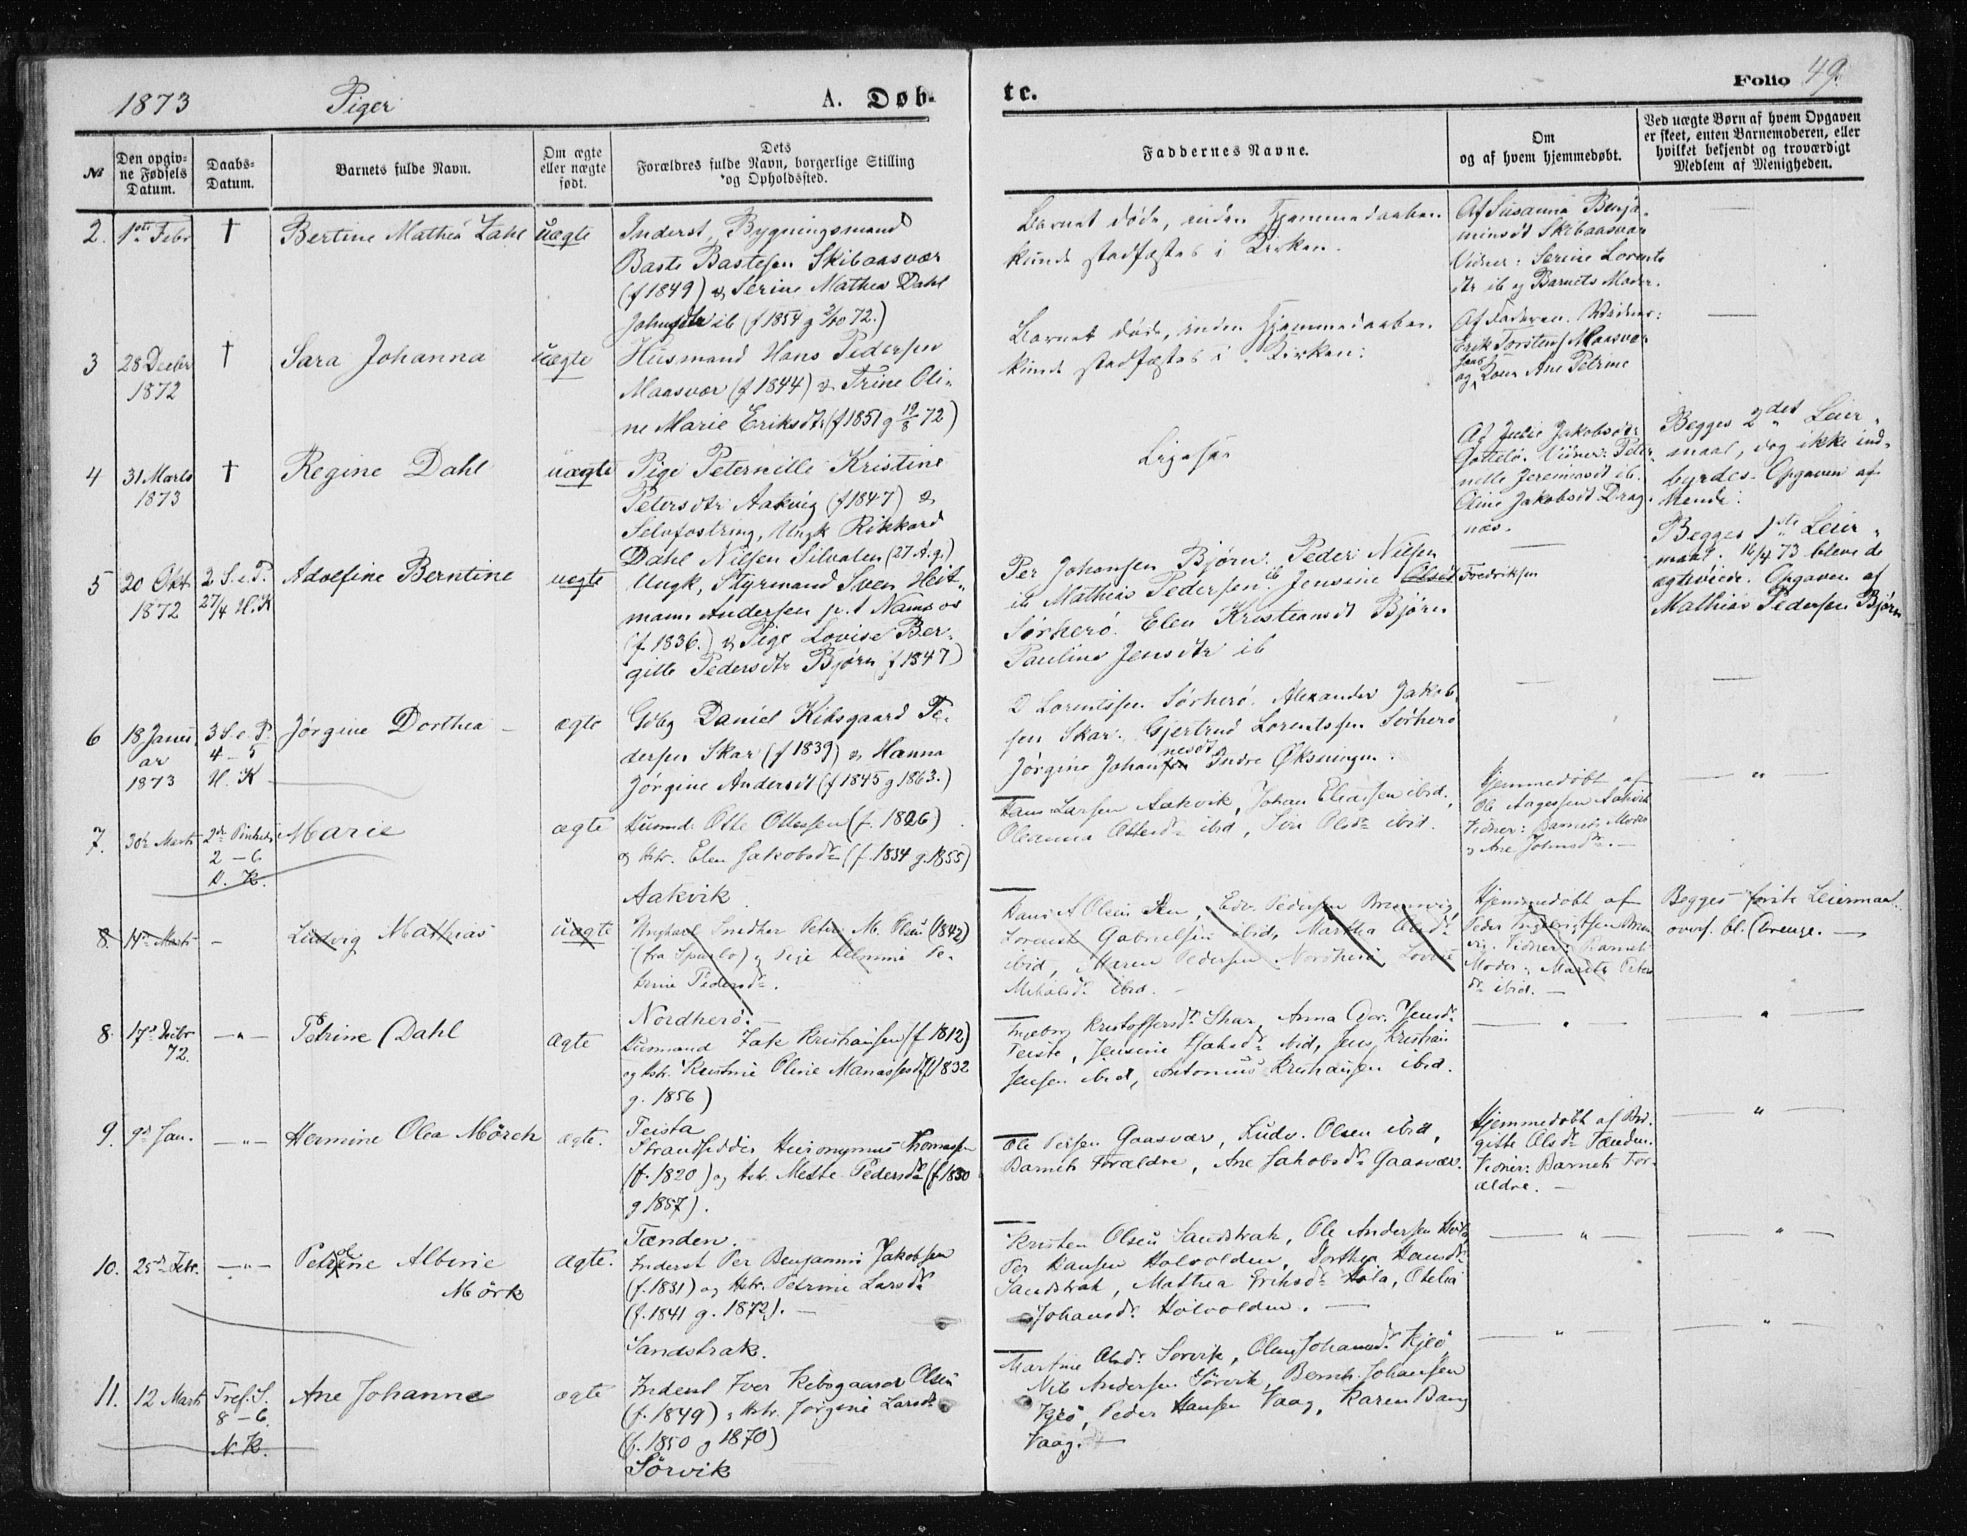 1873 Piger A. Døb-
te. Folio 49.
№
Den opgiv-
ne Fødsels
Datum.
Daabs-
Datum.
Barnets fulde Navn.
Om ægte
eller uægte
født.
Dets
Forældres fulde Navn, borgerlige Stilling
og Opholdssted.
Faddernes Navne.
Om
og af hvem hjemmedøbt.
Ved uægte Børn af hvem Opgaven
er skeet, enten Barnemoderen, eller
hvilket bekjendt og troværdigt
Medlem af Menigheden.
2. 1ste Febr † Bertine Mathea Dahl uægte
Inderst, Bygningsmand
Baste Bastesen Skibaasvær
(f 1849) & Serine Mathea Dahl
Johnsdtr ib (f 1854 g 2/10 72.)
Barnet døde, inden Hjemmedaaben
kunde stadfæstes i Kirken.
Af Susanna Benja-
minsdt Skibaasvær
Vidner: Serine Lorents
dtr ib og Barnets Moder.
3 28 Decbr
1872
† Sara Johanna uægte
Husmand Hans Pedersen
Maasvær (f 1844) & Trine Oli-
ne Marie Eriksdtr (f 1851 g 19/8 72)
Barnet døde, inden Hjemmedaaben
kunde stadfæstes i Kirken.
Af Faderen. Vidner:
Erik Torstens Maasvær
og Kone Ane Petrine
4 31 Marts
1873
† Regine Dahl uægte
Pige Peternille Kristine
Petersdtr Aakvig (f 1847) &
Selvfostring, Ungk Rikkard
Dahl Nilsen Silvalen (27 A. g.)
Ligesaa
Af Julie Jakobsdtr
Vidner: Peter-
nelle Jeremiasdt ib.
Oline Jakobsdt Drag-
næs.
Begges 2det Leier-
maal, dog ikke ind-
byrdes. Opgaven af
hende.
5 20 Okt
1872
2 S. e. P.
27/4 H. K
Adolfine Berntine uægte
Ungk, Styrmand Sven Heit-
mann Andersen p. t Namsos
(f. 1836.) & Pige Lovise Ber-
gitte Pedersdtr Bjørn (f 1847)
Per Johansen Bjørn. Peder Nilsen
ib Mathias Pedersen ib Jensine Olsdt Fredriksen
Sørherø. Elen Kristiansdt Bjørn
Pauline Jensdtr ib
Begges 1ste Leier-
maal. 16/4 73 bleve de
ægteviede. Opgaven af
Mathias Pedersen Bjørn
6 18 Janu
ar
1873
3 S. e. P.
4 - 5
H. K
Jørgine Dorthea ægte
Gdbg Daniel Kibsgaard Pe-
dersen Skar (f 1839) & Hanna
Jørgine Andersdt (f 1845 g 1863.)
D Lorentssen Sørherø. Alexander Jakob-
sen Skar. Gjertrud Lorentssen Sørherø
Jørgine Johannesdt Indre Øksningen.
7. 30te Marts 2den Pintsed.
2 - 6
H. K.
Marie ægte
Husmd. Otte Ottessen (f. 1826)
og Hstr. Elen Jakobsdr (f. 1834 g. 1855)
Aakvik
Hans Larsen Aakvik, Johan Eliassen ibid.,
Oleanna Ottesdr ibid, Sire Olsdr ibid.
Hjemmedøbt af
Ole Aagessen Aakvik
Vidner: Barnets Moder
& Ane Johnsdr.
8. 14de Marts - Ludvig Mathias uægte
Ungkarl Snedker Peter M. Olsen (1842)
(fra Sparbo) og Pige Elmine Pe-
trine Pedersdr.
Nordherø.
Hans A Olsen Sten, Edv. Pedersen
Lorents Gabrielsen ibid, Martha Olsdr
ibid, Maren Pedersen Nordherø Lovise
Mikalsdr ibid.
Hjemmedøbt af
Peder
Vidner: Barnets
Moder, Marith Peter
dr ibid.
Begges første Leiermaal.
overf. bl. Drenge.
8. 17de Decbr
72.
Petrine Dahl ægte
Husmand Jak Kristiansen (f 1812)
og Hstr. Kristine Oline Manassesdr (f 1832
g. 1856)
Teista
Ingeborg Kristoffersdr Skar, Anna Jensdr
Teiste, Jensine Jakobsdr ibid, Jens Kristian
Jensen ibid, Antonius Kristiansen ibid.
9. 9de Jan. Hermine Olea Mørch ægte.
Strandsidder Heironymus Thomassen
(f. 1820) og Hstr. Mette Pedersdr (f 1830
g 1857).
Tænden.
Ole Persen Gaasvær, Ludv. Olsen ibid,
Barnets Forældre, Ane Jakobsdr Gaasvær.
Hjemmedøbt af Bir-
gitte Olsdr Tænden.
Vidner: Barnets For-
ældre.
10. 25de Febr. Petrine Albine
Mørk ægte.
Inderst Per Benjamin Jakobsen
(f. 1831) og Hstr. Petrine Larsdr
(f. 1841 g. 1872).
Sandstrak.
Kristen Olsen Sandstrak, Ole Andersen
Per Hansen Holvolden, Dorthea Hansdr
Sandstrak, Mathea Eriksdr Hila, Otelia
Johansdr Holvolden.
11. 12 Marts Tref. S.
8 - 6.
N. K.
Ane Johanna ægte
Inderst Iver Kibsgaard Olsen
(f. 1849) & Hstr. Jørgine Larsdr
(f. 1850 g 1870)
Sørvik
Martine Olsdr Sørvik, Johansdr Kjeø
Nils Andersen Sørvik, Bernh. Johansen
Kjeø, Peder Hansen Vaag, Karen Bang
Vaag.